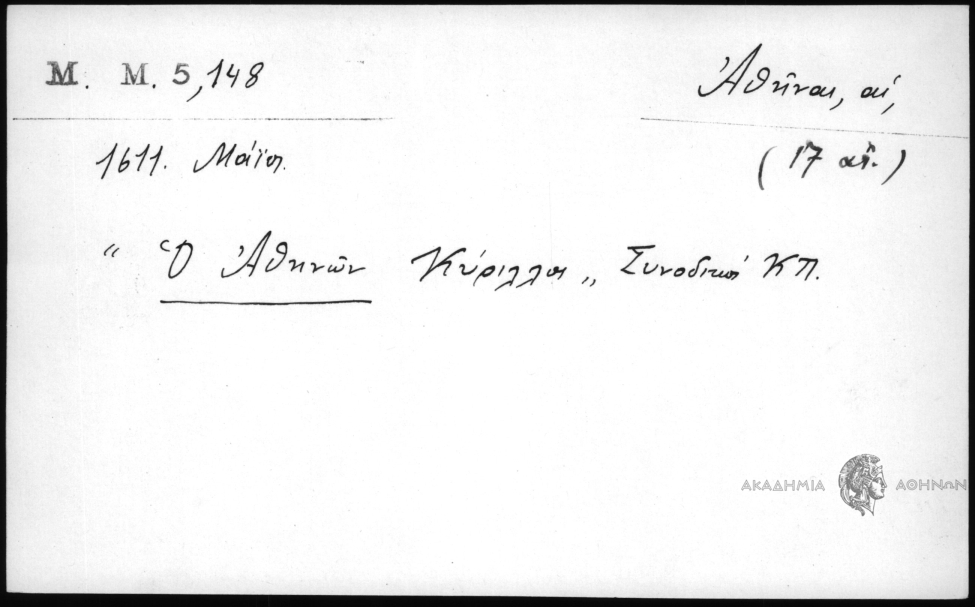 M. M. 5,148
Ἀθῆναι, αἱ,
1611. Μάϊος.
( 17 αἰ. )
“ Ὁ Ἀθηνῶν Κύριλλος „ Συνοδικὸς ΚΠ.
ΑΚΑΔΗΜΙΑ ΑΘΗΝΩΝ